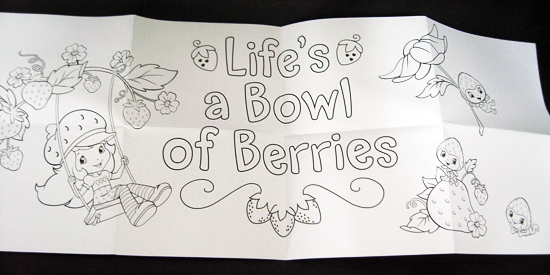 Life's
a Bowl
of Berries